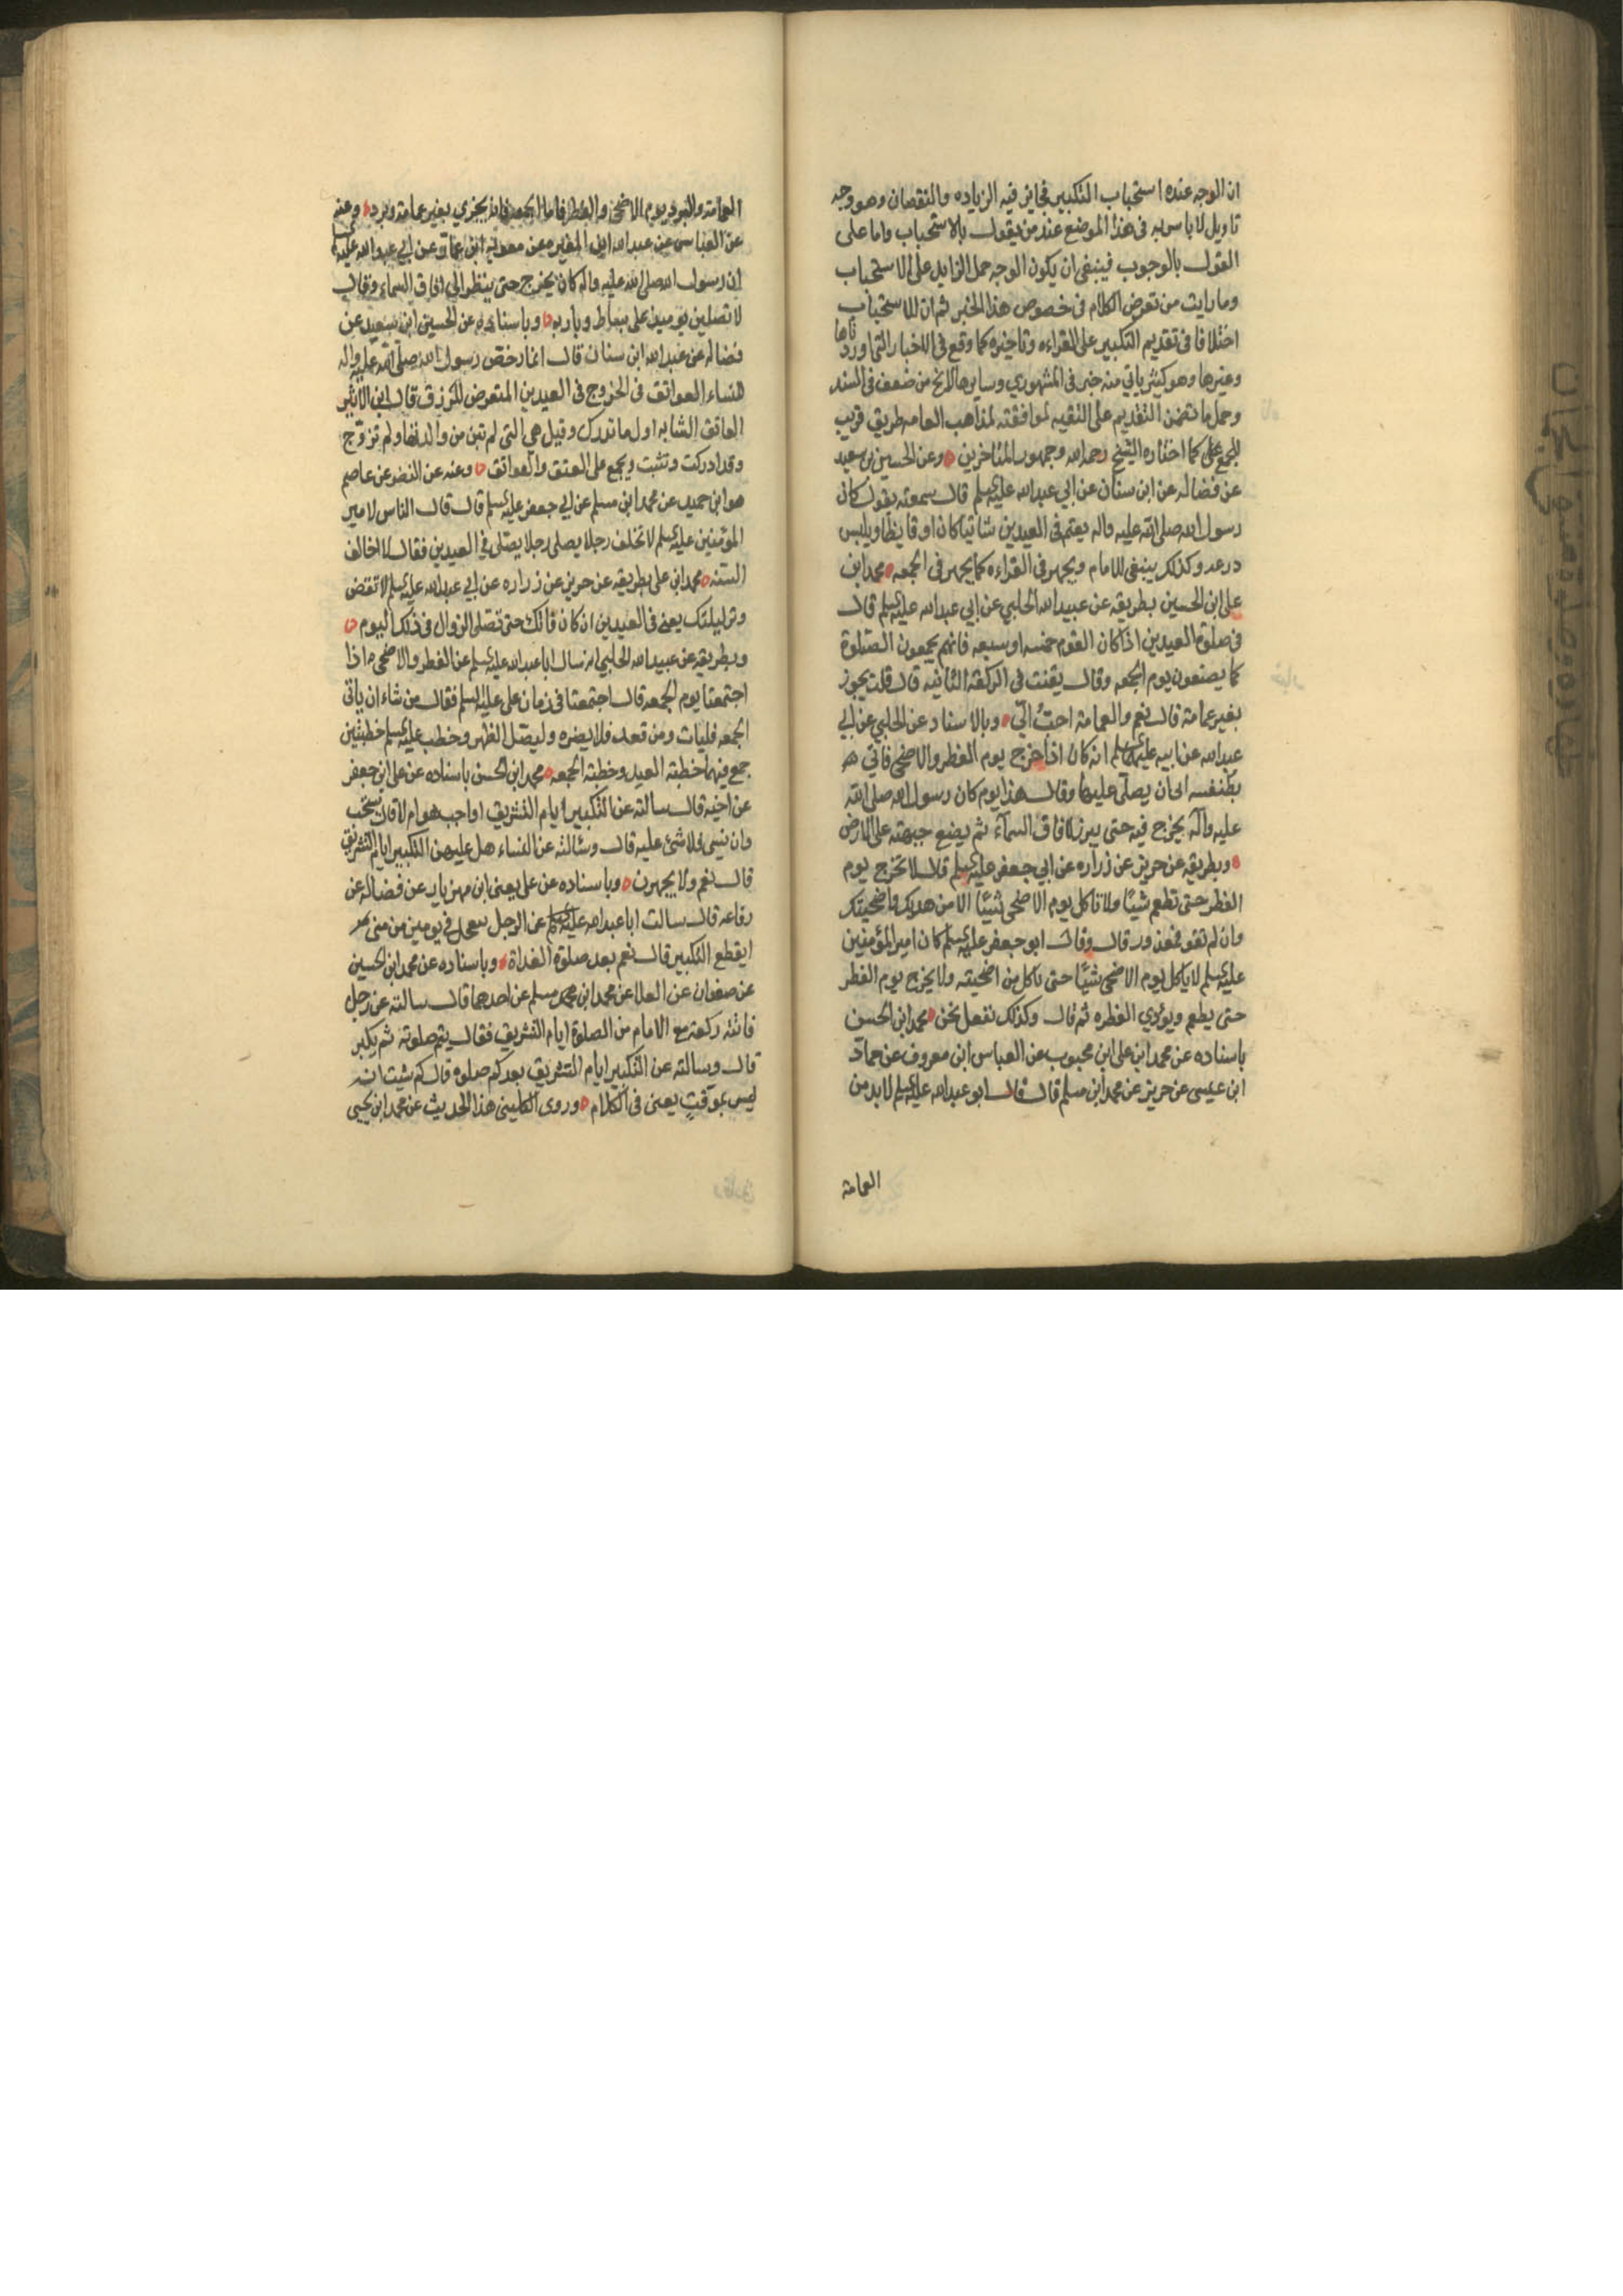 ان الوجه عنده استحباب التكبير فجايز فيه الزياده والنقصان وهو وجه
تاويل لا باس به فى هذا الموضع عند من يقول بالاستحباب واما على
القول بالوجوب فينبغى ان يكون الوجه حمل الزايد على الاستحباب
وما رايت من تعرض للكلام فى خصوص هذا الخبر ثم ان للاستحباب
اختلافا فى تقديم التكبير على القراءه وتاخيره كما وقع فى الاخبار التى اوردناها
وغيرها وهو كثير ياتى منه خبر فى المشهورى وسايرها لا يخ من ضعف فى السند
وحمل ما تضمن التقديم على التقيه لموافقته لمذاهب العامه طريق قريب
للجمع على كما اختاره الشيخ رحمه الله وجمهور المتاخرين وعن الحسين بن سعيد
عن فضاله عن ابن سنان عن ابي عبدالله عليه السلم قال سمعته يقول كان
رسول الله صلى الله عليه واله يعتم فى العيدين شاتيا كان او قايظا ويلبس
درعه وكذلك ينبغى للامام ويجهر فى القراءه كما يجهر فى الجمعه محمد ابن
على ابن الحسين بطريقه عن عبيدالله الحلبي عن ابي عبدالله عليه السلم قال
فى صلوة العيدين اذا كان القوم خمسه او سبعه فانهم يجمعون الصلوة
كما يصنعون يوم الجمعه وقال يقنت فى الركعة الثانيه قال قلت يجوز
بغير عمامة قال نعم والعمامة احبّ اليّ وبالاسناد عن الحلبي عن ابي
عبدالله عن ابيه عليهما السلم انه كان اذا خرج يوم الفطر والاضحى فاتي
بطنفسه ابى ان يصلّى عليها وقال هذا يوم كان رسول الله صلى الله
عليه وآله يخرج فيه حتى يبرز لافاق السمآء ثم يضع جبهته على الارض
وبطريقه عن حريز عن زراره عن ابي جعفر عليه السلم قال لا تخرج يوم
الفطر حتى تطعم شيئًا ولا تاكل يوم الاضحى شيئًا الا من هديك واضحيتك
وان لم تقو فمعذور قال وقال ابو جعفر عليه السلم كان امير المؤمنين
عليه السلم لا ياكل يوم الاضحى شيئًا حتى ياكل من اضحيته ولا يخرج يوم الفطر
حتى يطعم ويؤدي الفطره ثم قال وكذلك نفعل نحن محمد ابن الحسن
باسناده عن محمد ابن على ابن محبوب عن العباس ابن معروف عن حماد
ابن عيسى عن حريز عن محمد ابن مسلم قال قال ابو عبدالله عليه السلم لابد من
العمامة
العمامة والبرد يوم الاضحى والفطر فاما الجمعة فانه يجزي بغير عمامة وبرد وعنه
عن العباس عن عبدالله ابن المغيره عن معويه ابن عمار عن ابي عبدالله عليه السلم
ان رسول الله صلى الله عليه واله كان يخرج حتى ينظر الى افاق السماء وقال
لا تصلين يوميذ على بساط وباريه وباسناده عن الحسين ابن سعيد عن
فضاله عن عبدالله ابن سنان قال انما رخص رسول الله صلى الله عليه واله
للنساء العواتق فى الخروج فى العيدين للتعرض للرزق قال ابن الاثير
العاتق الشابه اول ما تدرك وقيل هى التى لم تبن من والديها ولم تزوّج
وقد ادركت وتثبت ويجمع على العتق والعواتق وعنه عن النضر عن عاصم
هو ابن حميد عن محمد ابن مسلم عن ابي جعفر عليه السلم قال قال الناس لامير
المؤمنين عليه السلم لا تخلف رجلا يصلى رجلا يصلى فى العيدين فقال لا اخالف
السنه محمد ابن على بطريقه عن حريز عن زراره عن ابي عبدالله عليه السلم لا تقض
وتر ليلتك يعنى فى العيدين ان كان فاتك حتى تصلى الزوال فى ذلك اليوم
وبطريقه عن عبيدالله الحلبي انه سال ابا عبدالله عليه السلم عن الفطر والاضحى اذا
اجتمعتا يوم الجمعه قال اجتمعتا فى زمان على عليه السلم فقال من شاء ان ياتى
الجمعه فليات ومن قعد فلا يضره وليصل الظهر وخطب عليه السلم خطبتين
جمع فيهما خطبة العيد وخطبة الجمعه محمد ابن الحسن باسناده عن على ابن جعفر
عن اخيه قال سالته عن التكبير ايام التشريق اواجب هو ام لا قال يستحب
وان نسى فلا شئ عليه قال وسئالته عن النساء هل عليهن التكبير ايام التشريق
قال نعم ولا يجهرن وباسناده عن على يعنى ابن مهزيار عن فضاله عن
رفاعه قال سالت ابا عبدالله عليه السلم عن الرجل يتعجل فى يومين من منى
ايقطع التكبير قال نعم بعد صلوة الغداة وباسناده عن محمد ابن الحسين
عن صفوان عن العلا عن محمد ابن مسلم عن احدهما قال سالته عن رجل
فاتته ركعة مع الامام من الصلوة ايام التشريق فقال يتم صلوته ثم يكبر
قال وسالته عن التكبير ايام التشريق بعد كم صلوه قال كم شيت انه
ليس بموقّتٍ يعنى فى الكلام وروى الكلينى هذا الحديث عن محمد ابن يحيى